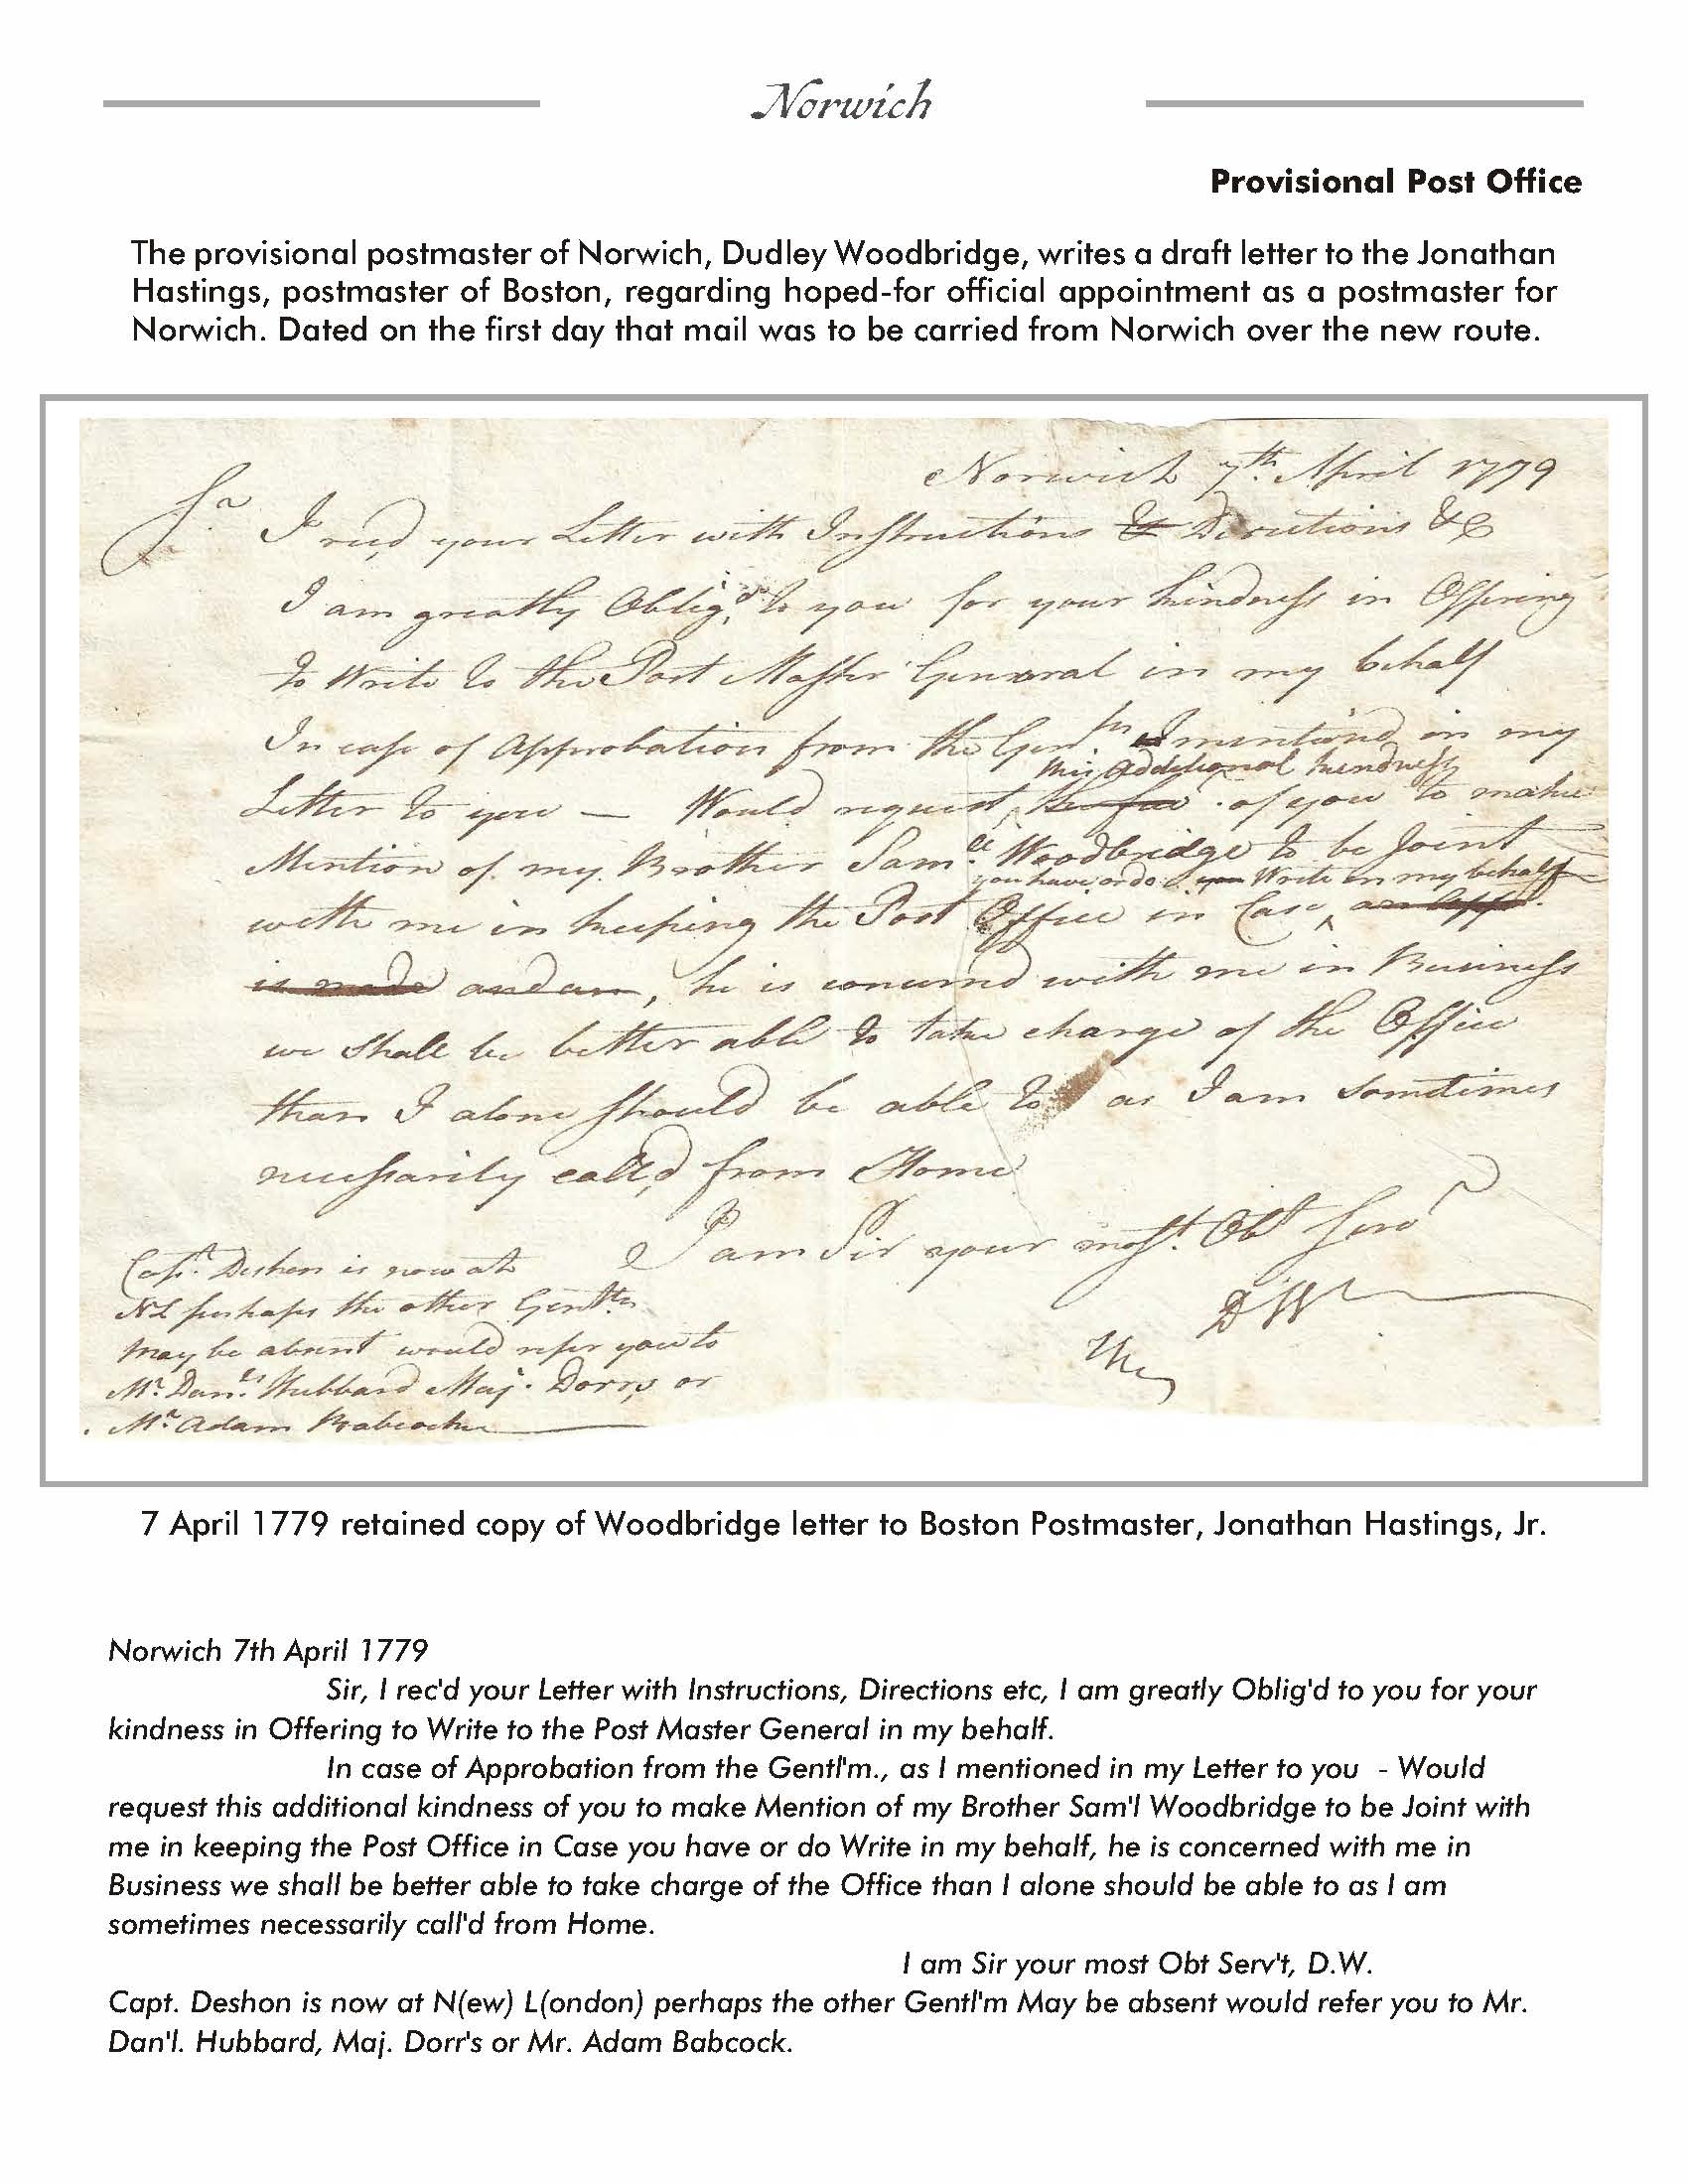 Norwich
Provisional Post Office
The provisional postmaster of Norwich, Dudley Woodbridge, writes a draft letter to the Jonathan
Hastings, postmaster of Boston, regarding hoped-for official appointment as a postmaster for
Norwich. Dated on the first day that mail was to be carried from Norwich over the new route.
Norwich 7th. April 1779
Sr I recd, your Letter with Instructions & Directions &c
I am greatly Oblig,d to you for your kindness in Offering
to Write to the Post Master General in my behalf
In case of Approbation from the Gentn. I mentiond in my
this additional kindness
Letter to you — Would request of you to make
Mention of my Brother Samll. Woodbridge to be Joint
you have or do you Write in my behalf
with me in keeping the Post Office in Case ^
is made and am, he is concernd with me in Business
we shall be better able to take charge of the Office
than I alone should be able to as I am sometimes
necessarily call,d from Home
I am Sir your most. Obt Servt
DW
Capt. Deshon is now at
NL perhaps the other Gentln
May be absent would refer you to
Mr. Danll. Hubbard Maj. Dorr,s or
Mr. Adam Babcock
7 April 1779 retained copy of Woodbridge letter to Boston Postmaster, Jonathan Hastings, Jr.
Norwich 7th April 1779
Sir, I rec'd your Letter with Instructions, Directions etc, I am greatly Oblig'd to you for your
kindness in Offering to Write to the Post Master General in my behalf.
In case of Approbation from the Gentl'm., as I mentioned in my Letter to you - Would
request this additional kindness of you to make Mention of my Brother Sam'l Woodbridge to be Joint with
me in keeping the Post Office in Case you have or do Write in my behalf, he is concerned with me in
Business we shall be better able to take charge of the Office than I alone should be able to as I am
sometimes necessarily call'd from Home.
I am Sir your most Obt Serv't, D.W.
Capt. Deshon is now at N(ew) L(ondon) perhaps the other Gentl'm May be absent would refer you to Mr.
Dan'l. Hubbard, Maj. Dorr's or Mr. Adam Babcock.